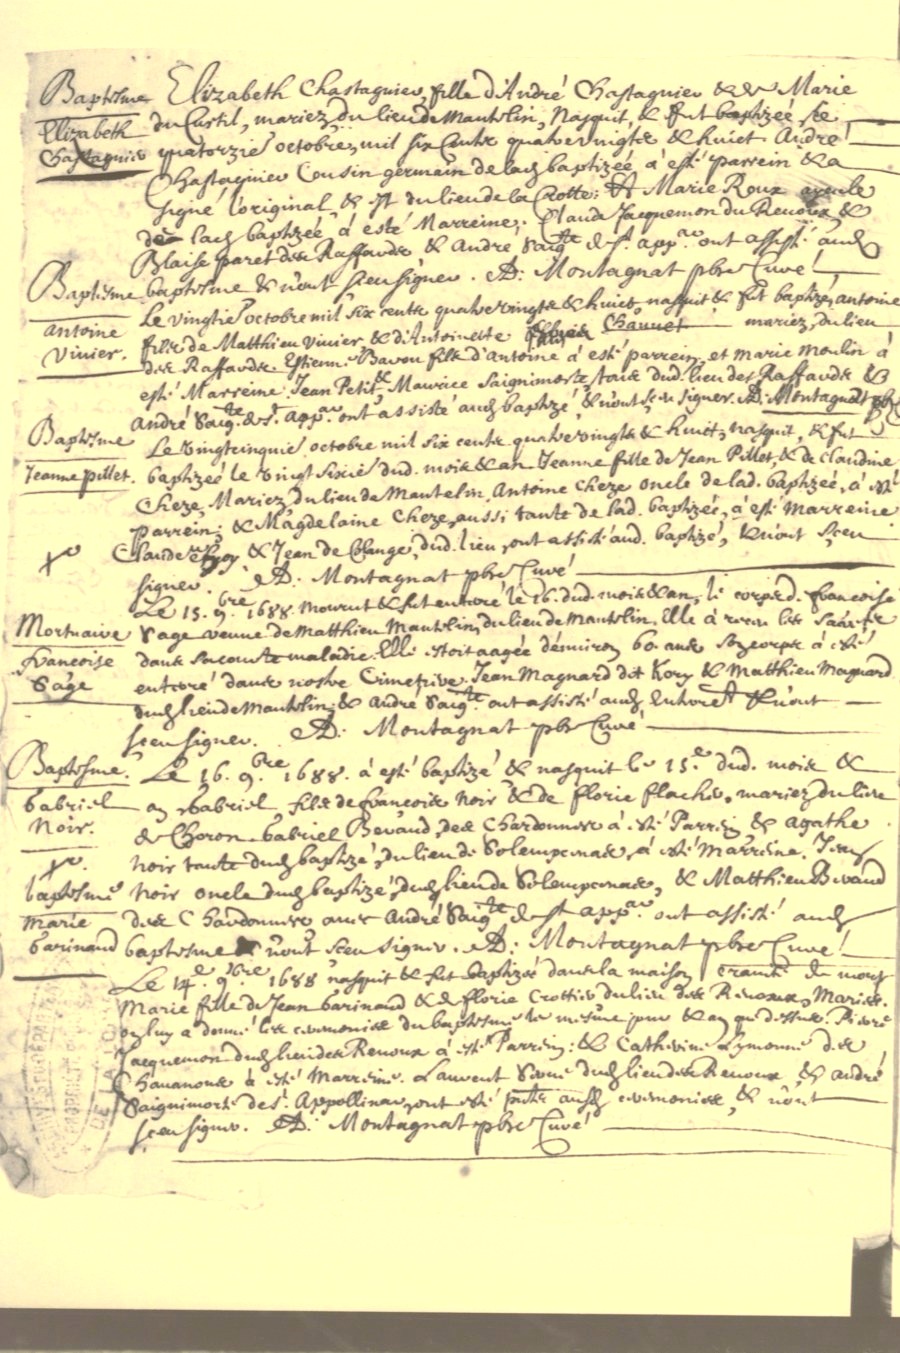 Baptesme Elizabeth Chastagnier, fille d'André Chastagnier & de Marie
Elizabeth du Curtil, mariez, du lieu de Mantelin, Nasquit, & fut baptizée le
Chastagnier quatorzie octobre, mil six Cents quatre vingts & huict André
Chastagnier Cousin germain de lad baptizée à esté parrein & a
signé l'original, & est du lieu de la Crotte; Et Marie Roux
de lad baptizée à esté Marreine; Claude Jacquemon du Renoux, &
Blaise paret des Raffauds & André Saig.te de s.t app.are ont assisté aud
baptesme & n'ont sceu signer. AD: Montagnat pbre Curé
Baptesme Le vingtie octobre mil six cents quatre vingts & huict, nasquit & fut baptizé, antoine
antoine fils de Matthieu Vinier, & d'Antoinette Chauuet mariez, du lieu
Vinier. des Raffauds. Estienne Bavou fils d'Antoine à esté parrein, et Marie Moulin à
esté Marreine. Jean Petit, & Maurice Saignimorte, tous dud. lieu des Raffauds &
André Saig.te de s.t App.are ont assisté aud baptizé, & n'ont sceu signer. AD: Montagnat pbre
Baptesme Le vingteinquie octobre mil six cents quatre vingts & huict, nasquit, & fut
Jeanne pillet. baptizée le vingt sixie dud. mois & an Jeanne fille de Jean Pillet, & de Claudine
Cheze, Mariez, du lieu de Mantelin, Antoine Cheze oncle de lad. baptizée, à esté
parrein; & Magdelaine Cheze, aussi tante de lad. baptizée, à esté Marreine
Claude & Jean de Colange, dud. lieu, ont assisté aud. baptizé, & n'ont sceu
signer. AD: Montagnat pbre Curé
Le 15. 9.bre 1688. mourut & fut enterré le 16. dud. mois & an, le corps d. francoise
Mortuaire Sage veuue de Matthieu Mantelin, du lieu de Mantelin. Elle à receu les
francoise dans sa courte maladie. Elle estoit aagée d'environ 60 ans son corps à esté
Sage enterré dans nostre Cimetiere. Jean Magnard dit Kory & Matthieu Magnard
dud lieu de Mantelin; & André Saig.te ont assisté aud & n'ont
sceu signer. AD: Montagnat pbre Curé
Baptesme. Le 16. 9.bre 1688. à esté baptizé & nasquit le 15.e dud. mois &
Gabriel an Gabriel fils de francois Noir & de florie flache, mariez, du lieu
Noir. de Choron Gabriel Bevaud, des Chardonners à esté Parrein & Agathe
Noir tante dud baptizé, du lieu de Solempemas, à esté Marreine. Jean
baptesme Noir oncle dud baptizé, dud lieu de Solempemas, & Matthieu Bevaud
Marie des Chardonners avec André Saig.te de st app.are ont assisté aud
Garinaud baptesme & n'ont sceu signer. AD: Montagnat pbre Curé
Le 14.e 9.bre 1688 nasquit & fut baptizée dans la maison de mort
Marie fille de Jean Garinaud & de florie Crottier du lieu des Renoux, Mariez.
on luy a donné les ceremonies du baptesme le mesme jour & an que dessus. Pierre
Jacquemon dud lieu des Renoux à esté Parrein: & Catherine Lymonne des
Chananous à esté Marreine. Laurent dud lieu des Renoux, & André
Saignimorte de s.t Appollinar, ont esté ausd ceremonies, & n'ont
sceu signer. AD: Montagnat pbre Curé